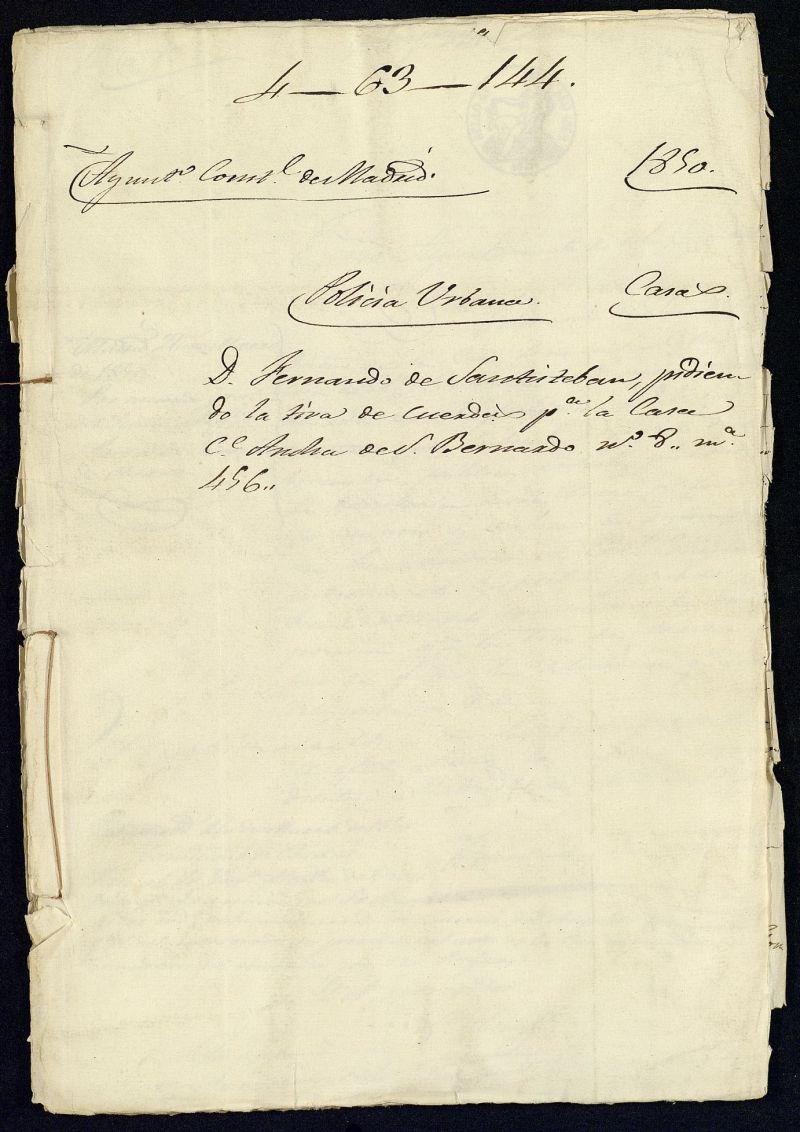 4 — 63 — 144.
Ayunt.º Const.l de Madrid. 1850.
Policia Urbana. Casas.
D. Fernando de Santisteban, pidien
do la tira de cuerdas p.ª la Casa
C.e Ancha de S. Bernardo n.º 8.. m.ª
456..